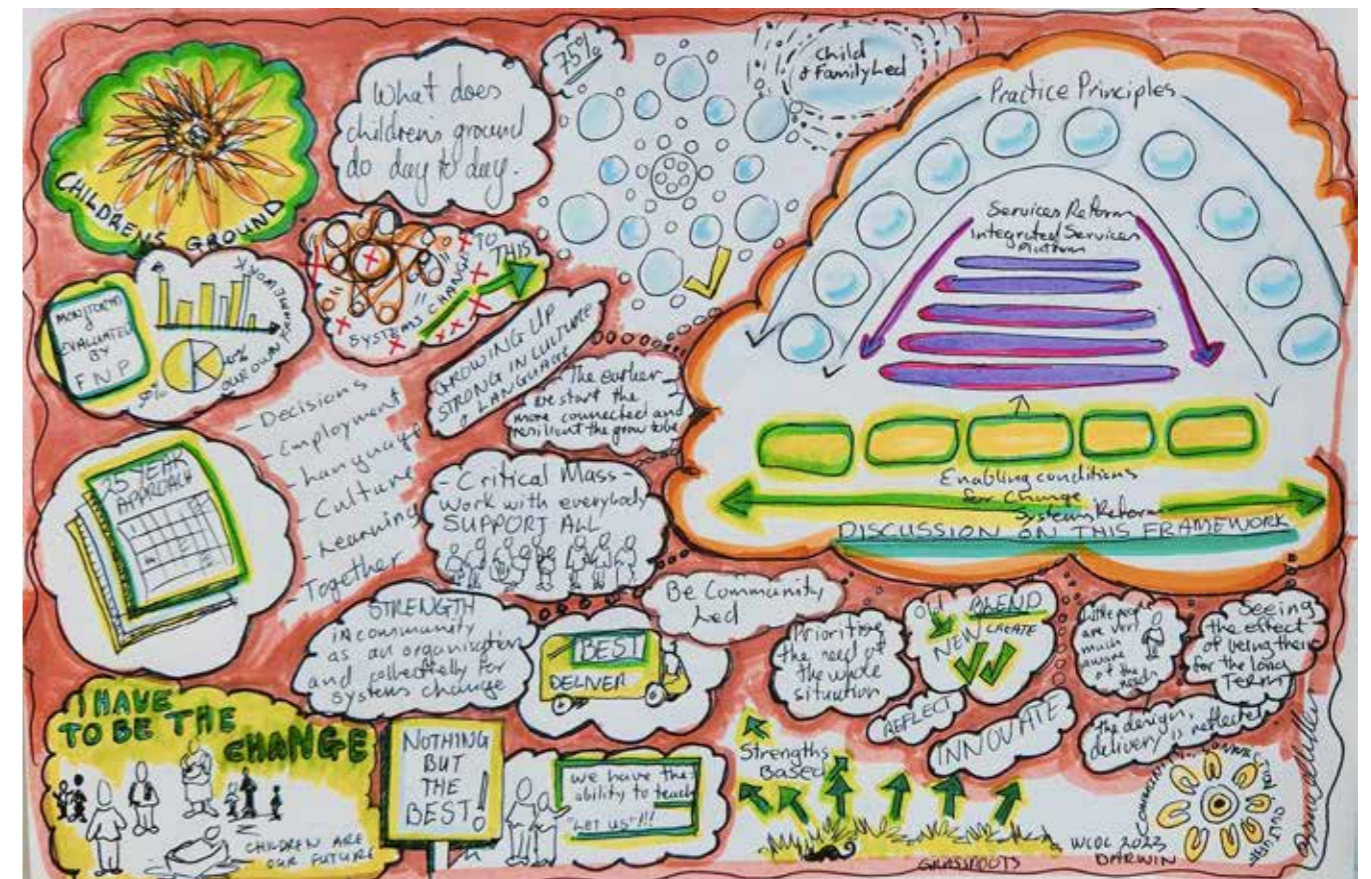 CHILDRENS GROUND
What does
children's ground
do day to day.
75%
Child
& Family Led
Practice Principles
Services Reform
Integrated Services
Platform
Enabling conditions
for Change
Systems Reform
DISCUSSION ON THIS FRAMEWORK
SYSTEMS CHANGE
TO
THIS
MONITORED
&
EVALUATED
BY
F N P
OUR OWN FRAMEWORK
GROWING UP
STRONG IN CULTURE
& LANGUAGE
The earlier
we start the
more connected and
resilient the grow to be
25 YEAR
APPROACH
- Decisions
- Employment
- Language
- Culture
- Learning
- Together
- Critical Mass -
work with everybody
SUPPORT ALL
STRENGTH
in community
as an organisation
and collectively for
systems change
BEST
DELIVER
Be Community
Led
Prioritise
the need of
the whole
situation
Old BLEND
NEW CREATE
REFLECT
INNOVATE
little people
are very
much
aware
of the needs
Seeing
the effect
of being there
for the long
Term
the design,
delivery is reflected
I HAVE
TO BE THE
CHANGE
CHILDREN ARE
OUR FUTURE
NOTHING
BUT
THE
BEST!
we have the
ability to teach
"Let us"!!!
Strengths
Based
GRASSROOTS
WCDC 2023
DARWIN
COMMUNITY
CONNECTION
CULTURE